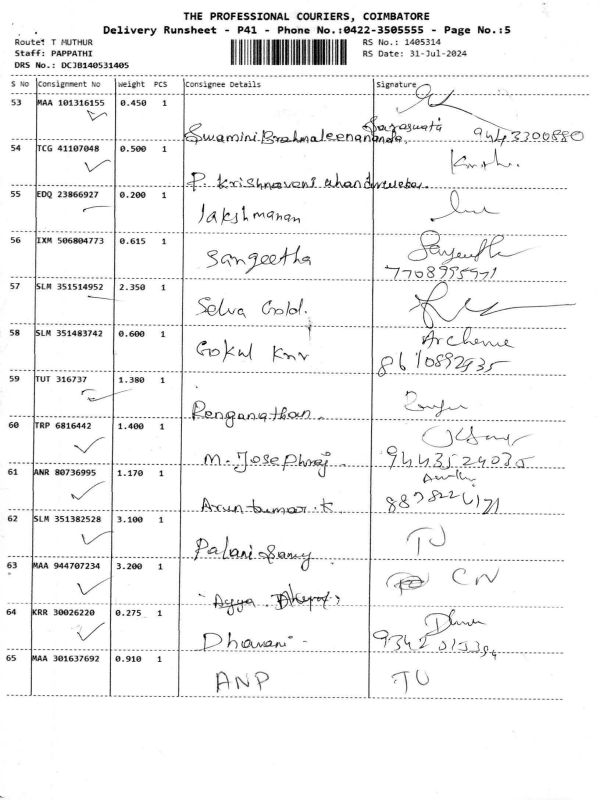 THE PROFESSIONAL COURIERS, COIMBATORE
Delivery Runsheet - P41 - Phone No.:0422-3505555 - Page No.:5
Route: T MUTHUR
RS No.: 1405314
Staff: PAPPATHI
RS Date: 31-Jul-2024
DRS No.: DCJB140531405
S No Consignment No Weight PCS Consignee Details Signature
53 MAA 101316155 0.450 1
Swamini Brahmaleenananda Saraswata 9443300880
54 TCG 41107048 0.500 1
P. Krishnaveni
55 EDQ 23866927 0.200 1
lakshmanan
56 IXM 506804773 0.615 1
Sangeetha
7708995971
57 SLM 351514952 2.350 1
Selva Gold.
58 SLM 351483742 0.600 1
Gokul Knr
8610892935
59 TUT 316737 1.380 1
Renganathan
60 TRP 6816442 1.400 1
M. Josephraj 9443524035
61 ANR 80736995 1.170 1
Arunkumar. K
62 SLM 351382528 3.100 1
Palani Samy TU
63 MAA 944707234 3.200 1
Ayya CN
64 KRR 30026220 0.275 1
Dharani
65 MAA 301637692 0.910 1
ANP TU